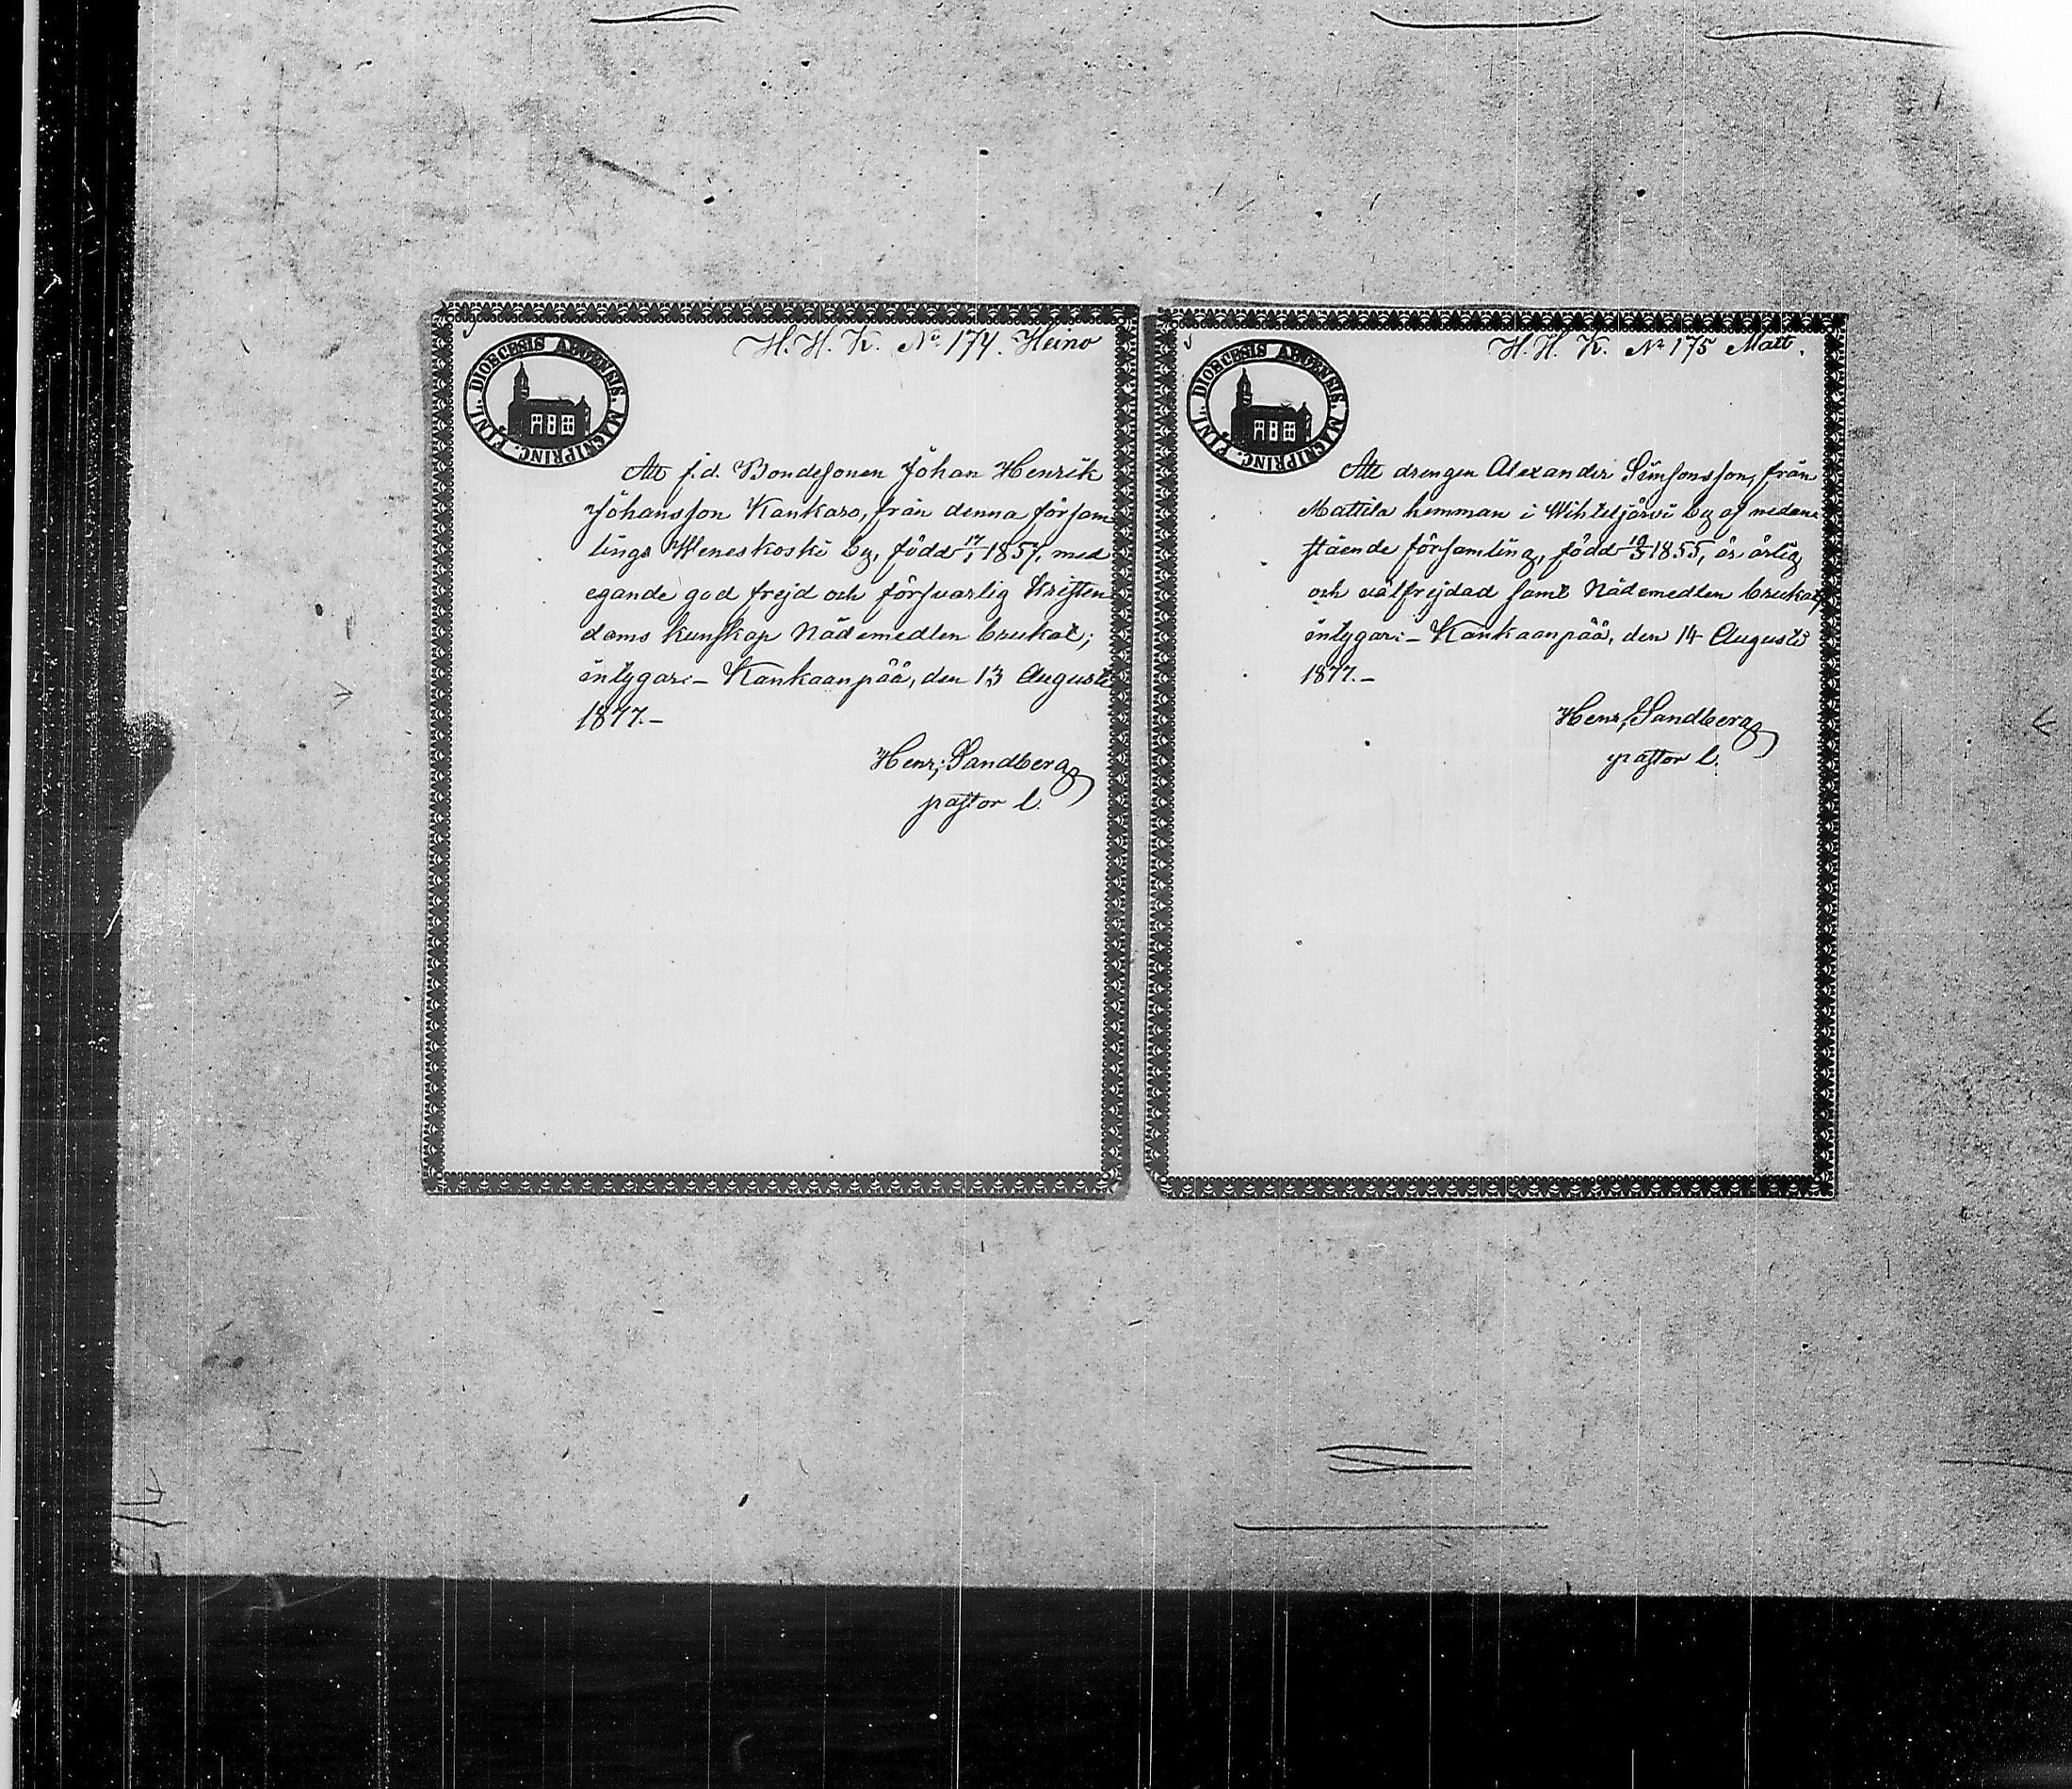 H. H. K. No 174. Heino
DIOECESIS ABOENSIS. MAGNIPRINC. FINL.
Att f.d. Bondesonen Johan Henrik
Johansson Kankaro, från denna försam
lings Weneskoski by, född 17/1 1857, med
egande god frejd och försvarlig Kristen
doms kunskap Nådemedlen brukat;
intygar:- Kankaanpää, den 13 Augusti
1877.-
Henr; Sandberg
pastor l.
H. H. K. No 175 Matt.
DIOECESIS ABOENSIS. MAGNIPRINC. FINL.
Att drengen Alexander Simsonsson, från
Mattila hemman i Wihteljärvi by af nedan
stående församling, född 10/3 1855, är ärlig
och välfrejdad samt Nådemedlen brukat,
intygar:- Kankaanpää, den 14 Augusti
1877.-
Henr; Sandberg
pastor l.